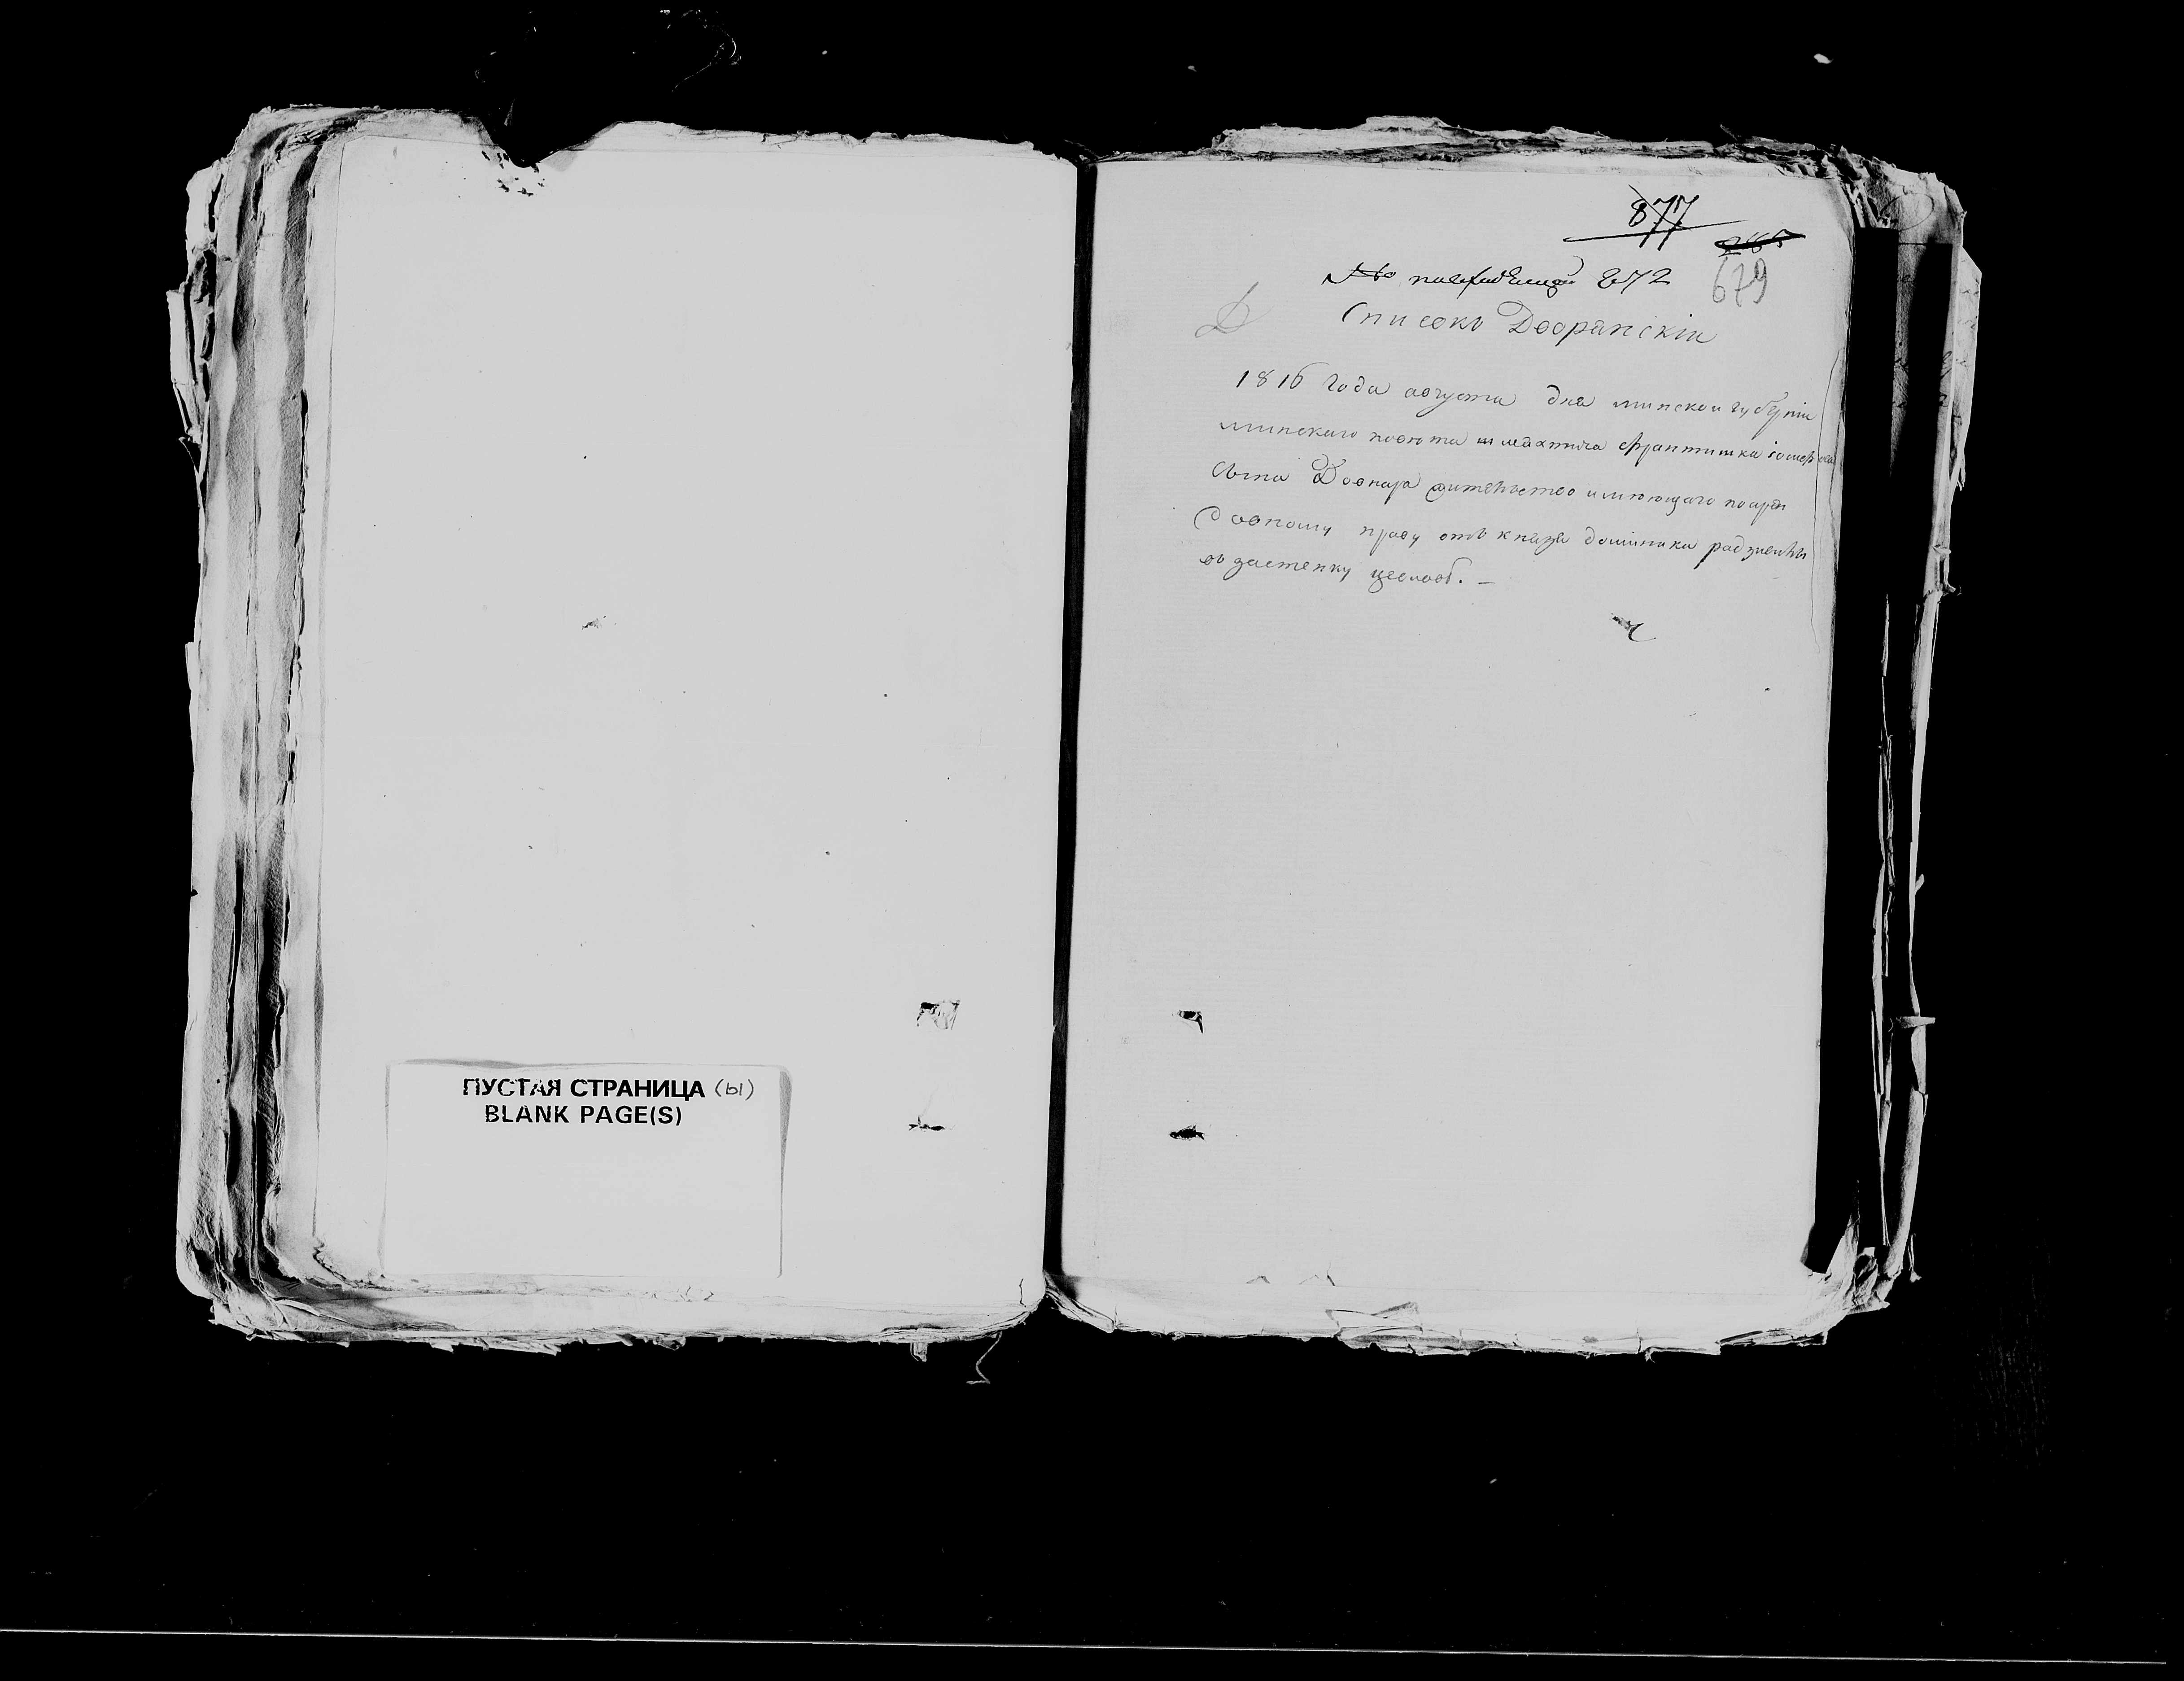 ПУСТАЯ СТРАНИЦА (ы)
BLANK PAGE(S)
877
679
№ 872
Списокъ Дворянскіи
1816 года августа дня минской губерніи
минскаго повѣта шляхтича Францишка
сына Довнара жительство имѣющаго по арен
довному праву отъ князя доминика
въ застенку